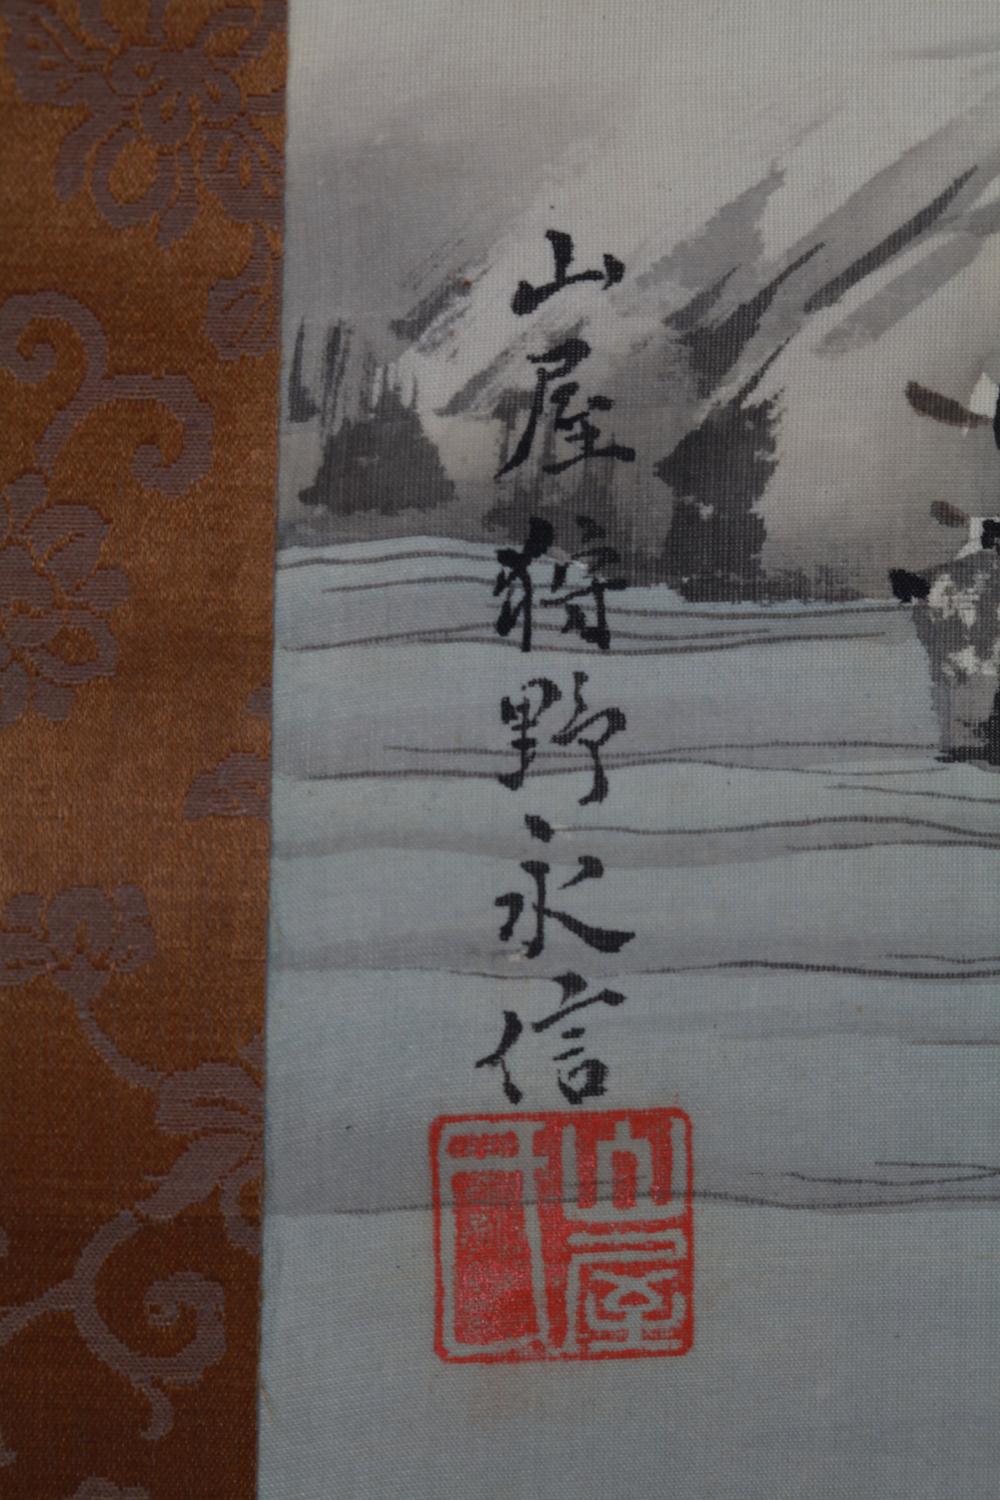 山屋狩野永信
山屋